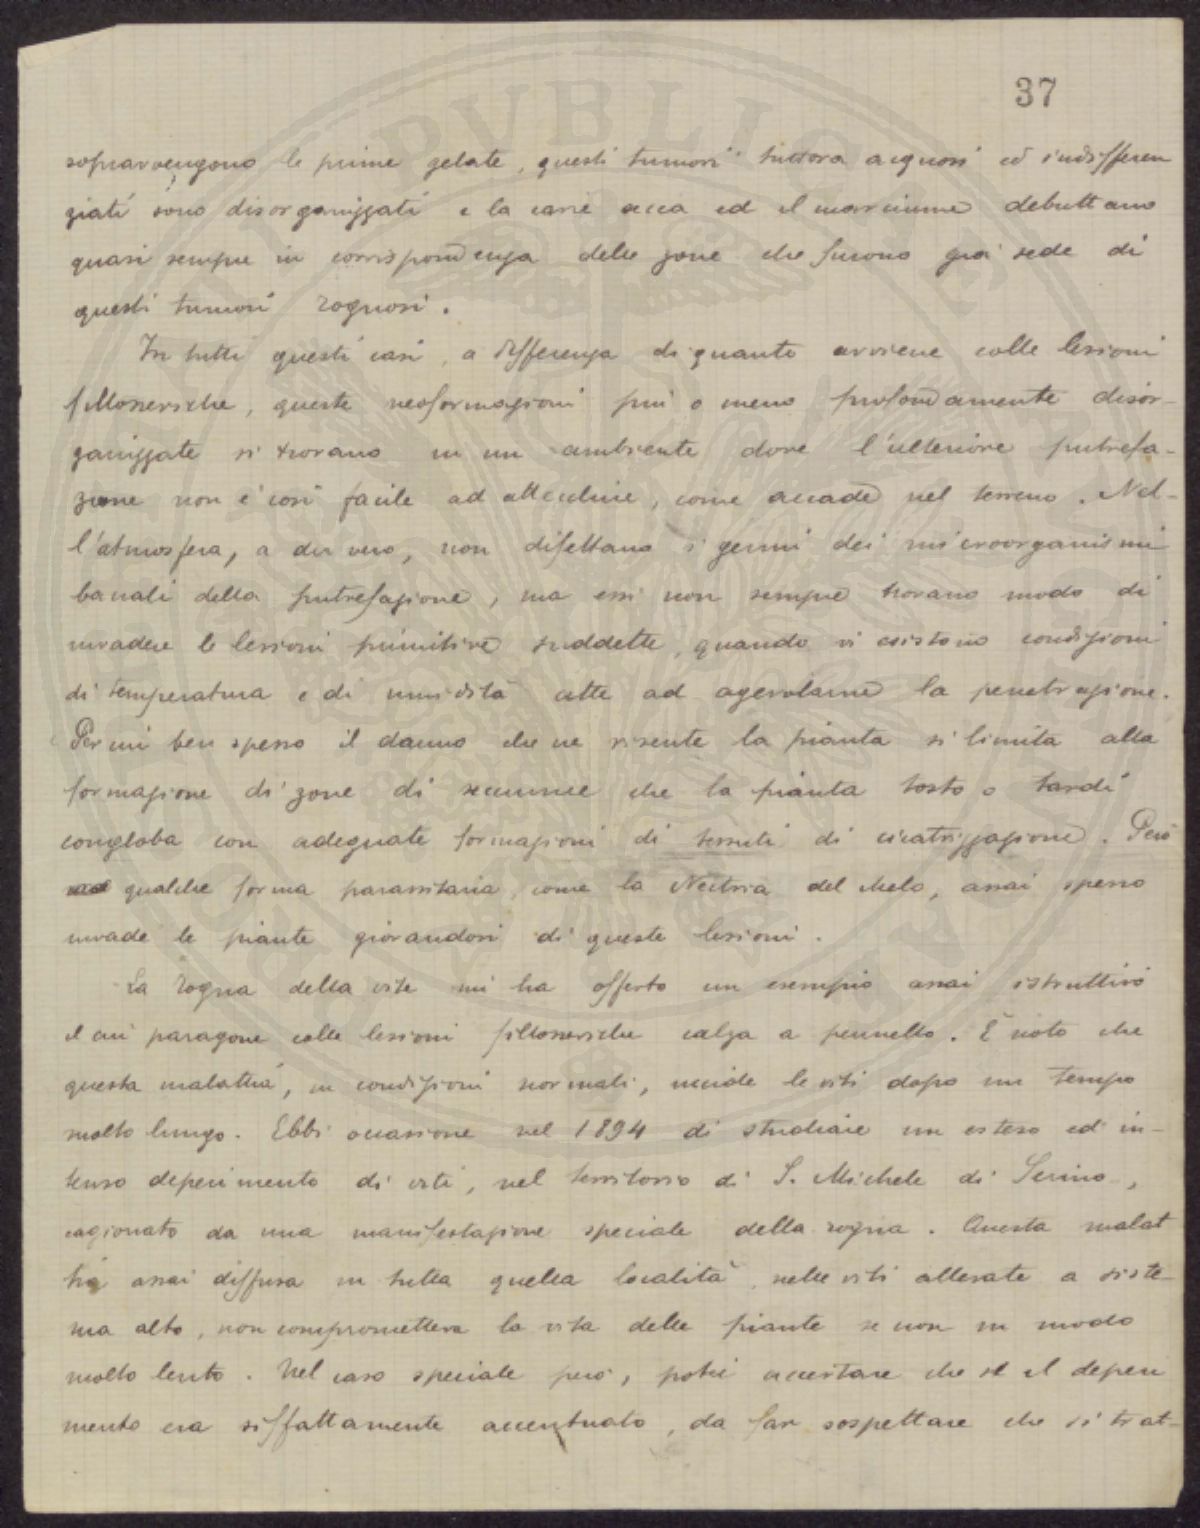 37
sopravvengono le prime gelate, questi tumori tuttora acquosi ed indifferen
ziati sono disorganizzati e la carie secca ed il marciume debuttano
quasi sempre in corrispondenza delle zone che furono già sede di
questi tumori rognosi.
In tutti questi casi, a differenza di quanto avviene colle lesioni
fillosseriche, queste neoformazioni più o meno profondamente disor-
ganizzate si trovano in un ambiente dove l'ulteriore putrefa-
zione non è così facile ad attecchire, come accade nel terreno. Nel-
l'atmosfera, a dir vero, non difettano i germi dei microorganismi
banali della putrefazione, ma essi non sempre trovano modo di
invadere le lesioni primitive suddette, quando vi esistono condizioni
di temperatura e di umidità atte ad agevolarne la penetrazione.
Per cui ben spesso il danno che ne risente la pianta si limita alla
formazione di zone di seccume che la pianta tosto o tardi
congloba con adeguate formazioni di tessuti di cicatrizzazione. Però
qualche forma parassitaria, come la Nectria del Melo, assai spesso
invade le piante giovandosi di queste lesioni.
La rogna della vite mi ha offerto un esempio assai istruttivo
il cui paragone colle lesioni fillosseriche calza a pennello. È noto che
questa malattia, in condizioni normali, uccide le viti dopo un tempo
molto lungo. Ebbi occasione nel 1894 di studiare un esteso ed in-
tenso deperimento di viti, nel territorio di S. Michele di Serino,
cagionato da una manifestazione speciale della rogna. Questa malat
tia assai diffusa in tutta quella località, nelle viti allevate a siste-
ma alto, non comprometteva la vita delle piante se non in modo
molto lento. Nel caso speciale però, potei accertare che se il deperi
mento era siffattamente accentuato, da far sospettare che si trat-